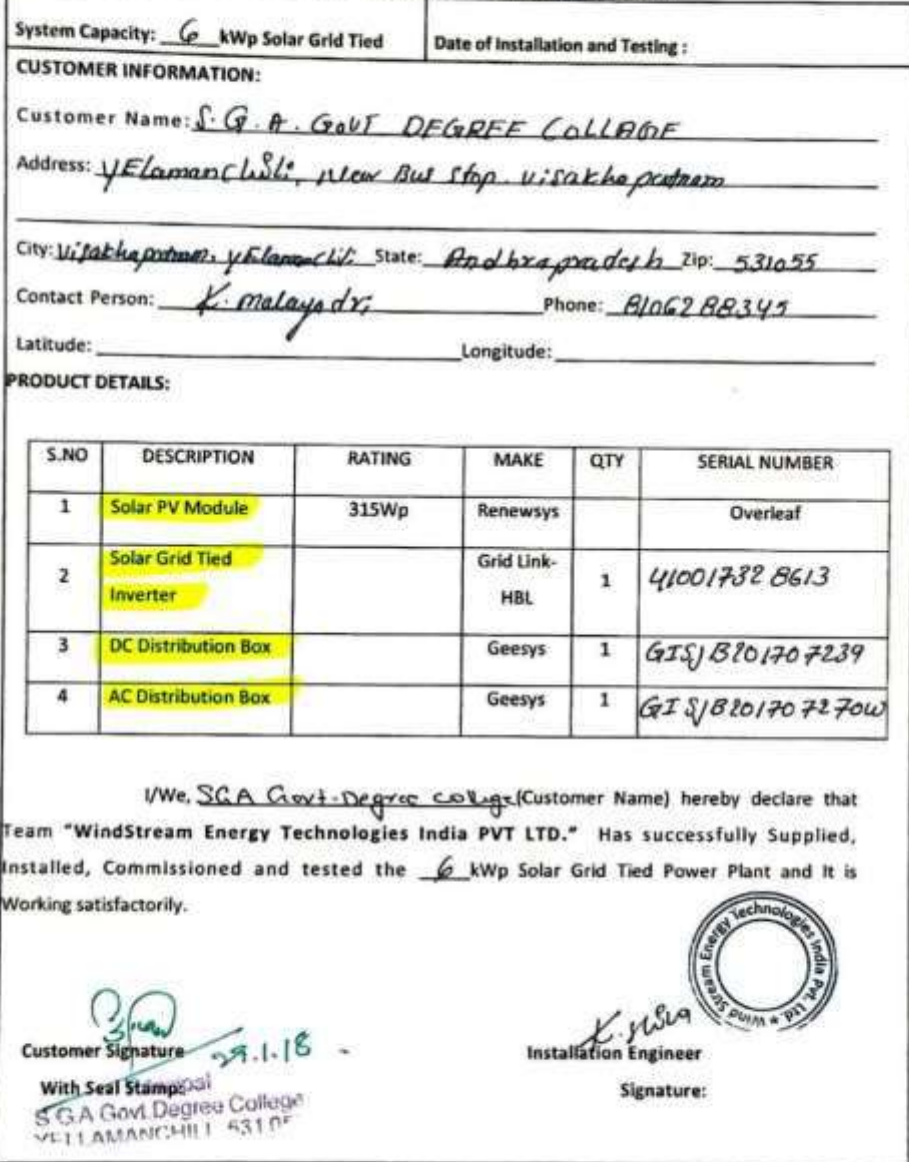 System Capacity: 6 kWp Solar Grid Tied
Date of Installation and Testing :
CUSTOMER INFORMATION:
Customer Name: S.G.A. GOVT DEGREE COLLAGE
Address: YElamanchili, New Bus Stop. Visakhapatnam
City: Visakhapatnam, YElamanchili State: Andhrapradesh Zip: 531055
Contact Person: K. malayadri Phone: 8106288345
Latitude: Longitude:
PRODUCT DETAILS:
S.NO DESCRIPTION RATING MAKE QTY SERIAL NUMBER
1 Solar PV Module 315Wp Renewsys Overleaf
2 Solar Grid Tied Inverter Grid Link-HBL 1 41001732 8613
3 DC Distribution Box Geesys 1 GISJB201707239
4 AC Distribution Box Geesys 1 GISJB201707270W
I/We, SGA Govt. Degree college (Customer Name) hereby declare that
Team "WindStream Energy Technologies India PVT LTD." Has successfully Supplied,
Installed, Commissioned and tested the 6 kWp Solar Grid Tied Power Plant and It is
Working satisfactorily.
Wind Stream Energy Technologies India Pvt. Ltd. *
K. Shiva
Customer Signature 29.1.18
Installation Engineer
With Seal Stamp:
Signature:
S G A Govt. Degree College
YELLAMANCHILI 53105